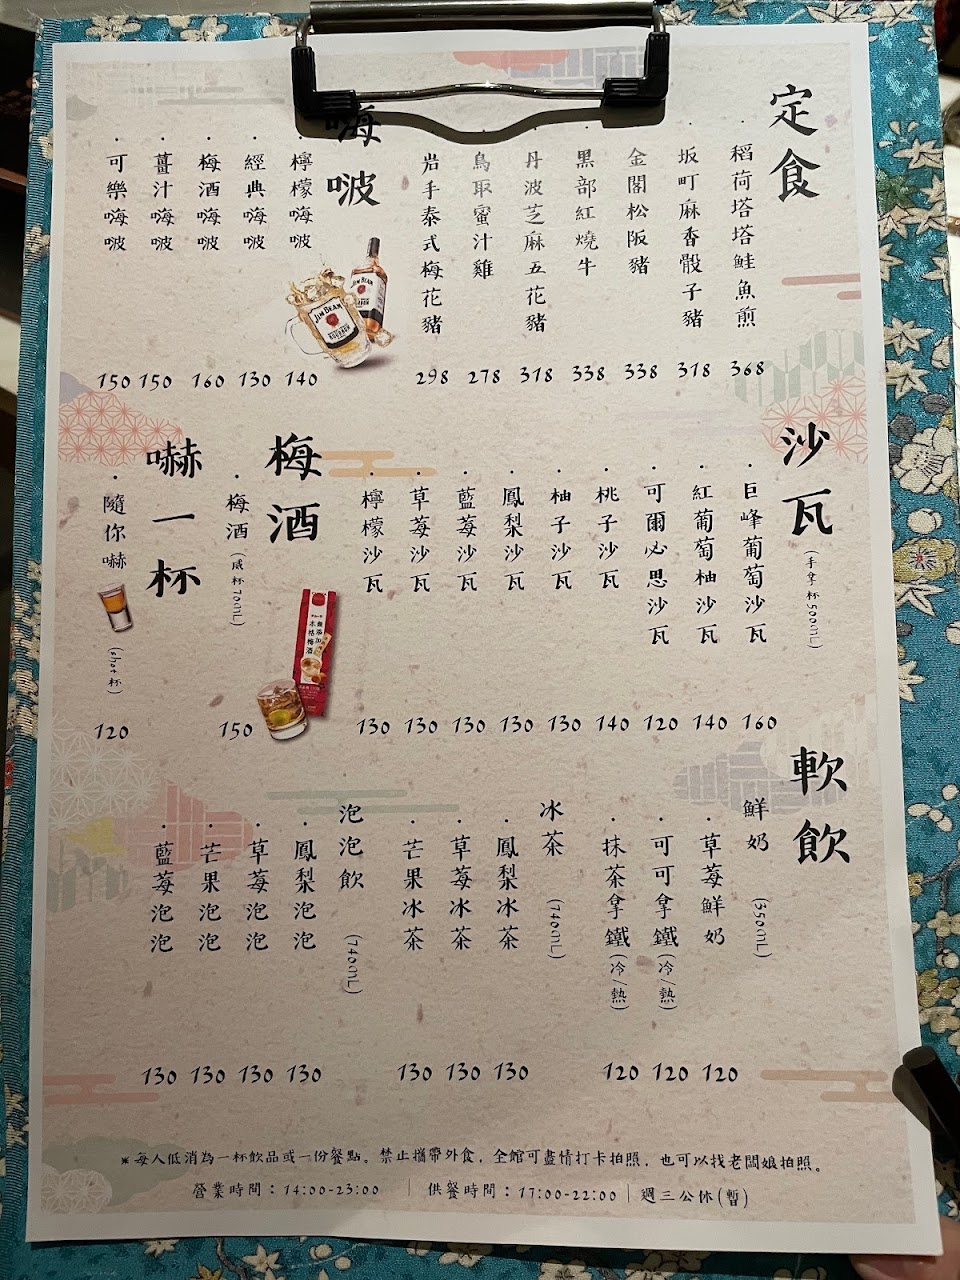 定食
・稻荷塔塔鮭魚煎 368
・坂町麻香骰子豬 318
・金閣松阪豬 338
・黑部紅燒牛 338
・丹波芝麻五花豬 318
鳥取蜜汁雞 278
岩手泰式梅花豬 298
嗨啵
・檸檬嗨啵 140
・經典嗨啵 130
・梅酒嗨啵 160
・薑汁嗨啵 150
・可樂嗨啵 150
JIM BEAM
JIM BEAM
BOURBON
沙瓦
(手拿杯500ML)
・巨峰葡萄沙瓦 160
・紅葡萄柚沙瓦 140
・可爾必思沙瓦 120
・桃子沙瓦 140
・柚子沙瓦 130
・鳳梨沙瓦 130
・藍莓沙瓦 130
・草莓沙瓦 130
・檸檬沙瓦 130
梅酒
・梅酒(威杯70ML) 150
無添加
本格梅酒
嚇一杯
・隨你嚇 (shot杯) 120
軟飲
鮮奶 (350ML)
・草莓鮮奶 120
・可可拿鐵(冷/熱) 120
・抹茶拿鐵(冷/熱) 120
冰茶 (740ML)
・鳳梨冰茶 130
・草莓冰茶 130
・芒果冰茶 130
泡泡飲 (740ML)
・鳳梨泡泡 130
・草莓泡泡 130
・芒果泡泡 130
・藍莓泡泡 130
※每人低消為一杯飲品或一份餐點。禁止攜帶外食，全館可盡情打卡拍照，也可以找老闆娘拍照。
營業時間：14:00-23:00 | 供餐時間：17:00-22:00 | 週三公休(暫)